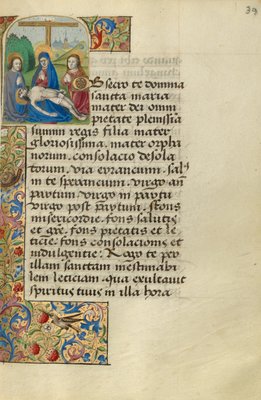 39
O Bsecro te domina
sancta maria
mater dei omni
pietate plenissia
summi regis filia mater
gloriosissima. mater orpha
norum. consolacio desola
torum. via errancium. sal⁹
in te sperancium. virgo an̄
partum. virgo in partu
virgo post partum. fons
misericordie. fons salutis
et gr̄e. fons pietatis et le
ticie. fons consolacionis et
indulgentie. Rogo te per
illam sanctam inestimabi
lem leticiam. qua exultavit
spiritus tuus in illa hora